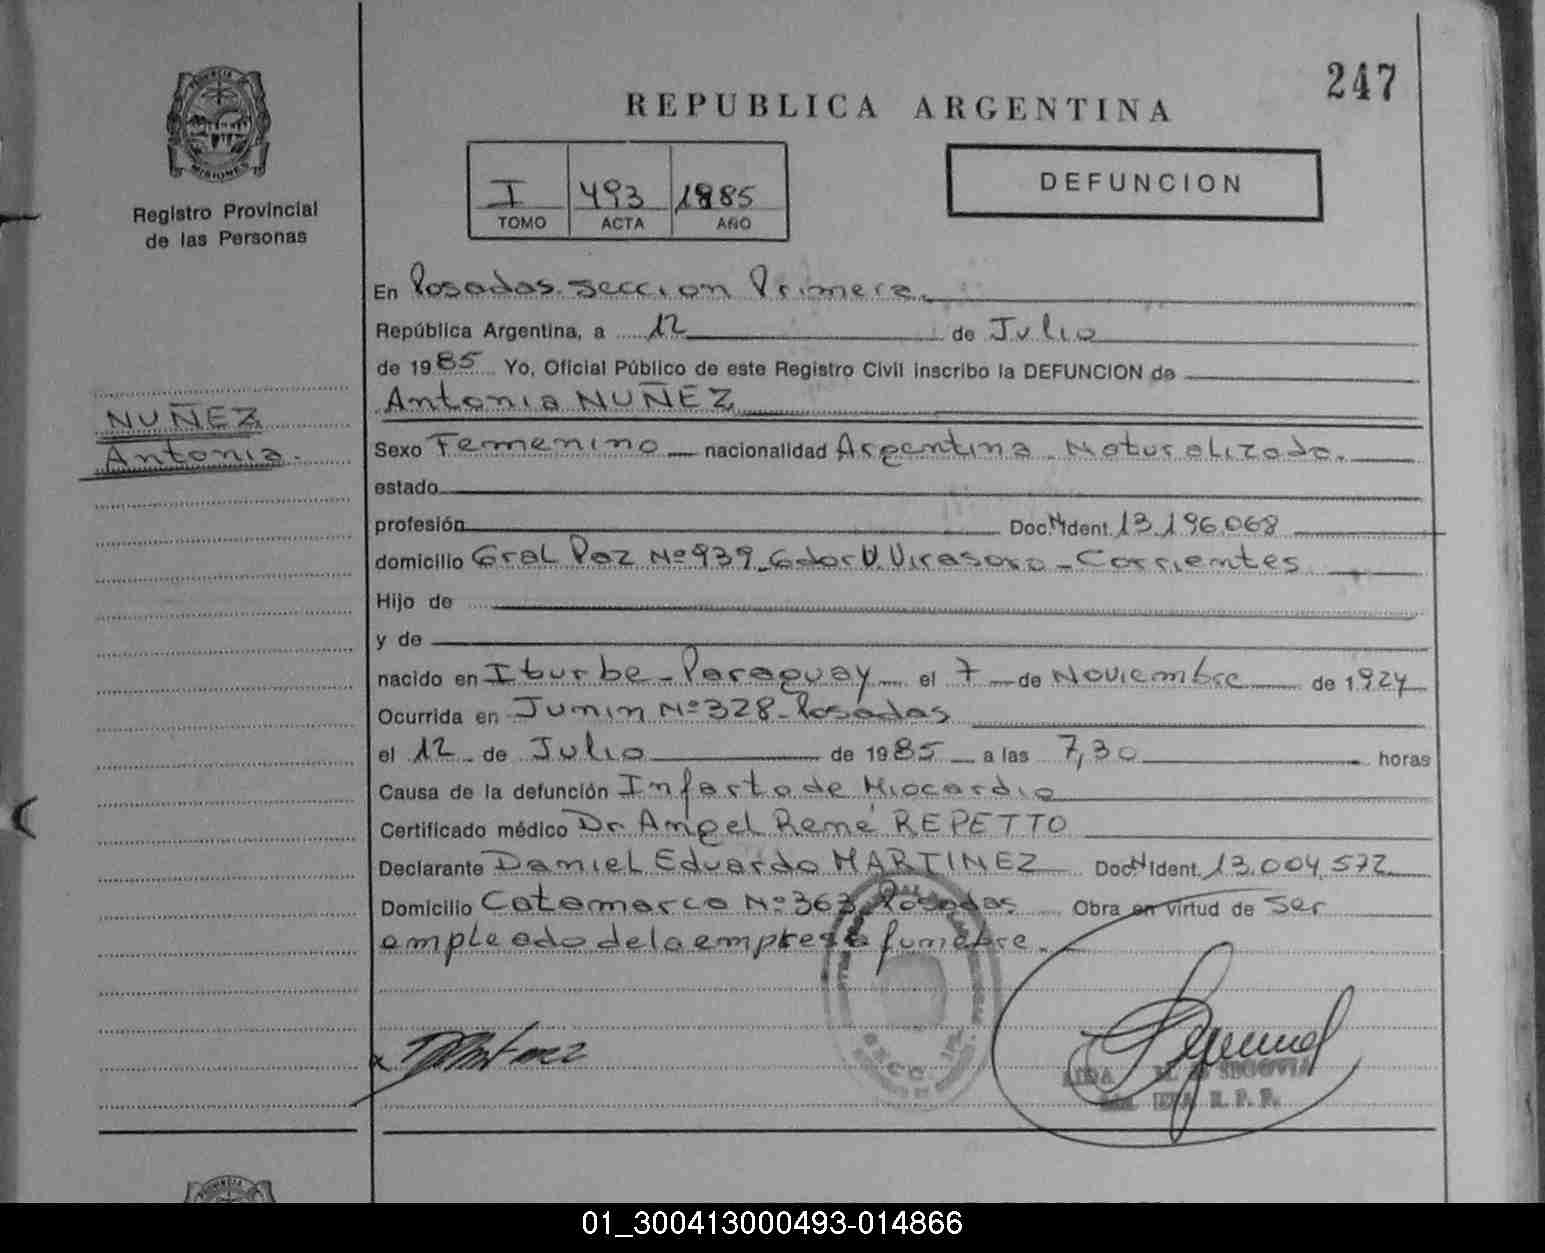 247
REPUBLICA ARGENTINA
PROVINCIA DE
MISIONES
Registro Provincial
de las Personas
I 493 1985
TOMO ACTA AÑO
DEFUNCION
NUÑEZ
Antonia.
En Posadas. Seccion Primera.
República Argentina, a 12 de Julio
de 1985 Yo, Oficial Público de este Registro Civil inscribo la DEFUNCION de
Antonia NUÑEZ
Sexo Femenino nacionalidad Argentina. Naturalizada.
estado
profesión Doc. N Ident. 13.196.068
domicilio Gral Paz Nº 939 - Gdor V. Virasoro - Corrientes
Hijo de
y de
nacido en Iturbe - Paraguay el 7 de Noviembre de 1924
Ocurrida en Junin Nº 328 - Posadas
el 12 de Julio de 1985 a las 7,30 horas
Causa de la defunción Infarto de Miocardio
Certificado médico Dr. Angel René REPETTO
Declarante Daniel Eduardo MARTINEZ Doc. N Ident. 13.004.572
Domicilio Catamarca Nº 363 Posadas Obra en virtud de Ser
empleado de la empresa funebre.
SECC. 1ra.
AIDA M. SEGOVIA
R. P. P.
PROVINCIA DE
01_300413000493-014866